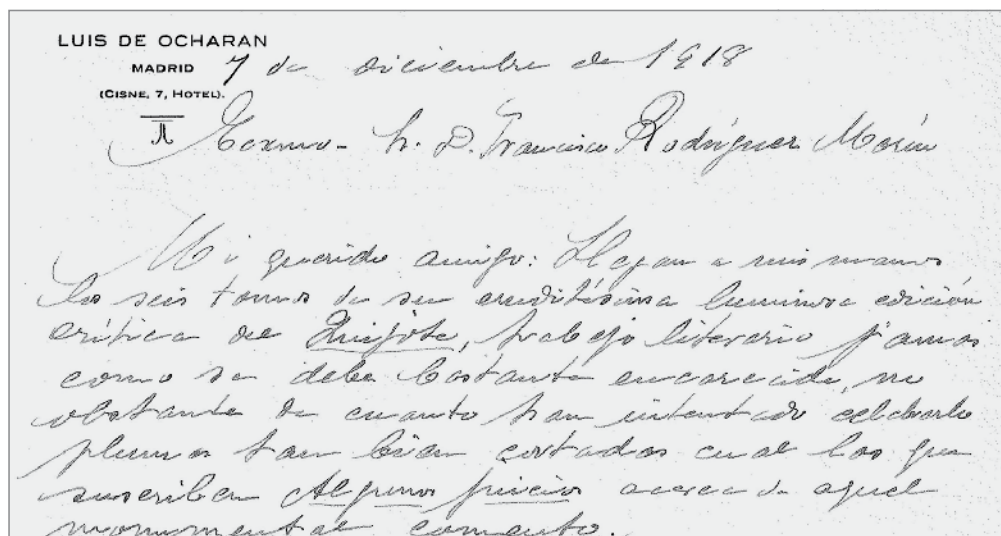 LUIS DE OCHARAN
MADRID
(CISNE, 7, HOTEL).
7 de diciembre de 1918
Excmo. Sr. D. Francisco Rodríguez Marín
Mi querido amigo: Llegan a mis manos
los seis tomos de su eruditísima luminosa edición
crítica de Quijote, trabajo literario jamás
como se debe bastante encarecido, no
obstante de cuanto han intentado celebrarlo
plumas tan bien cortadas cual las que
suscriben Algunos juicios acerca de aquel
monumental comento.